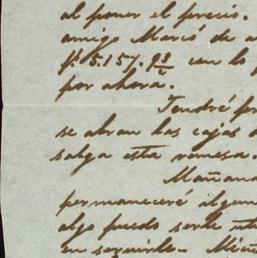 al poner el precio.
amigo Mario de a
5.157.93 con lo p
por ahora.
Tendré pr
se abran las cajas d
salga esta remesa.
Mañana
permaneceré algun
algo puedo serle uti
en servirle—